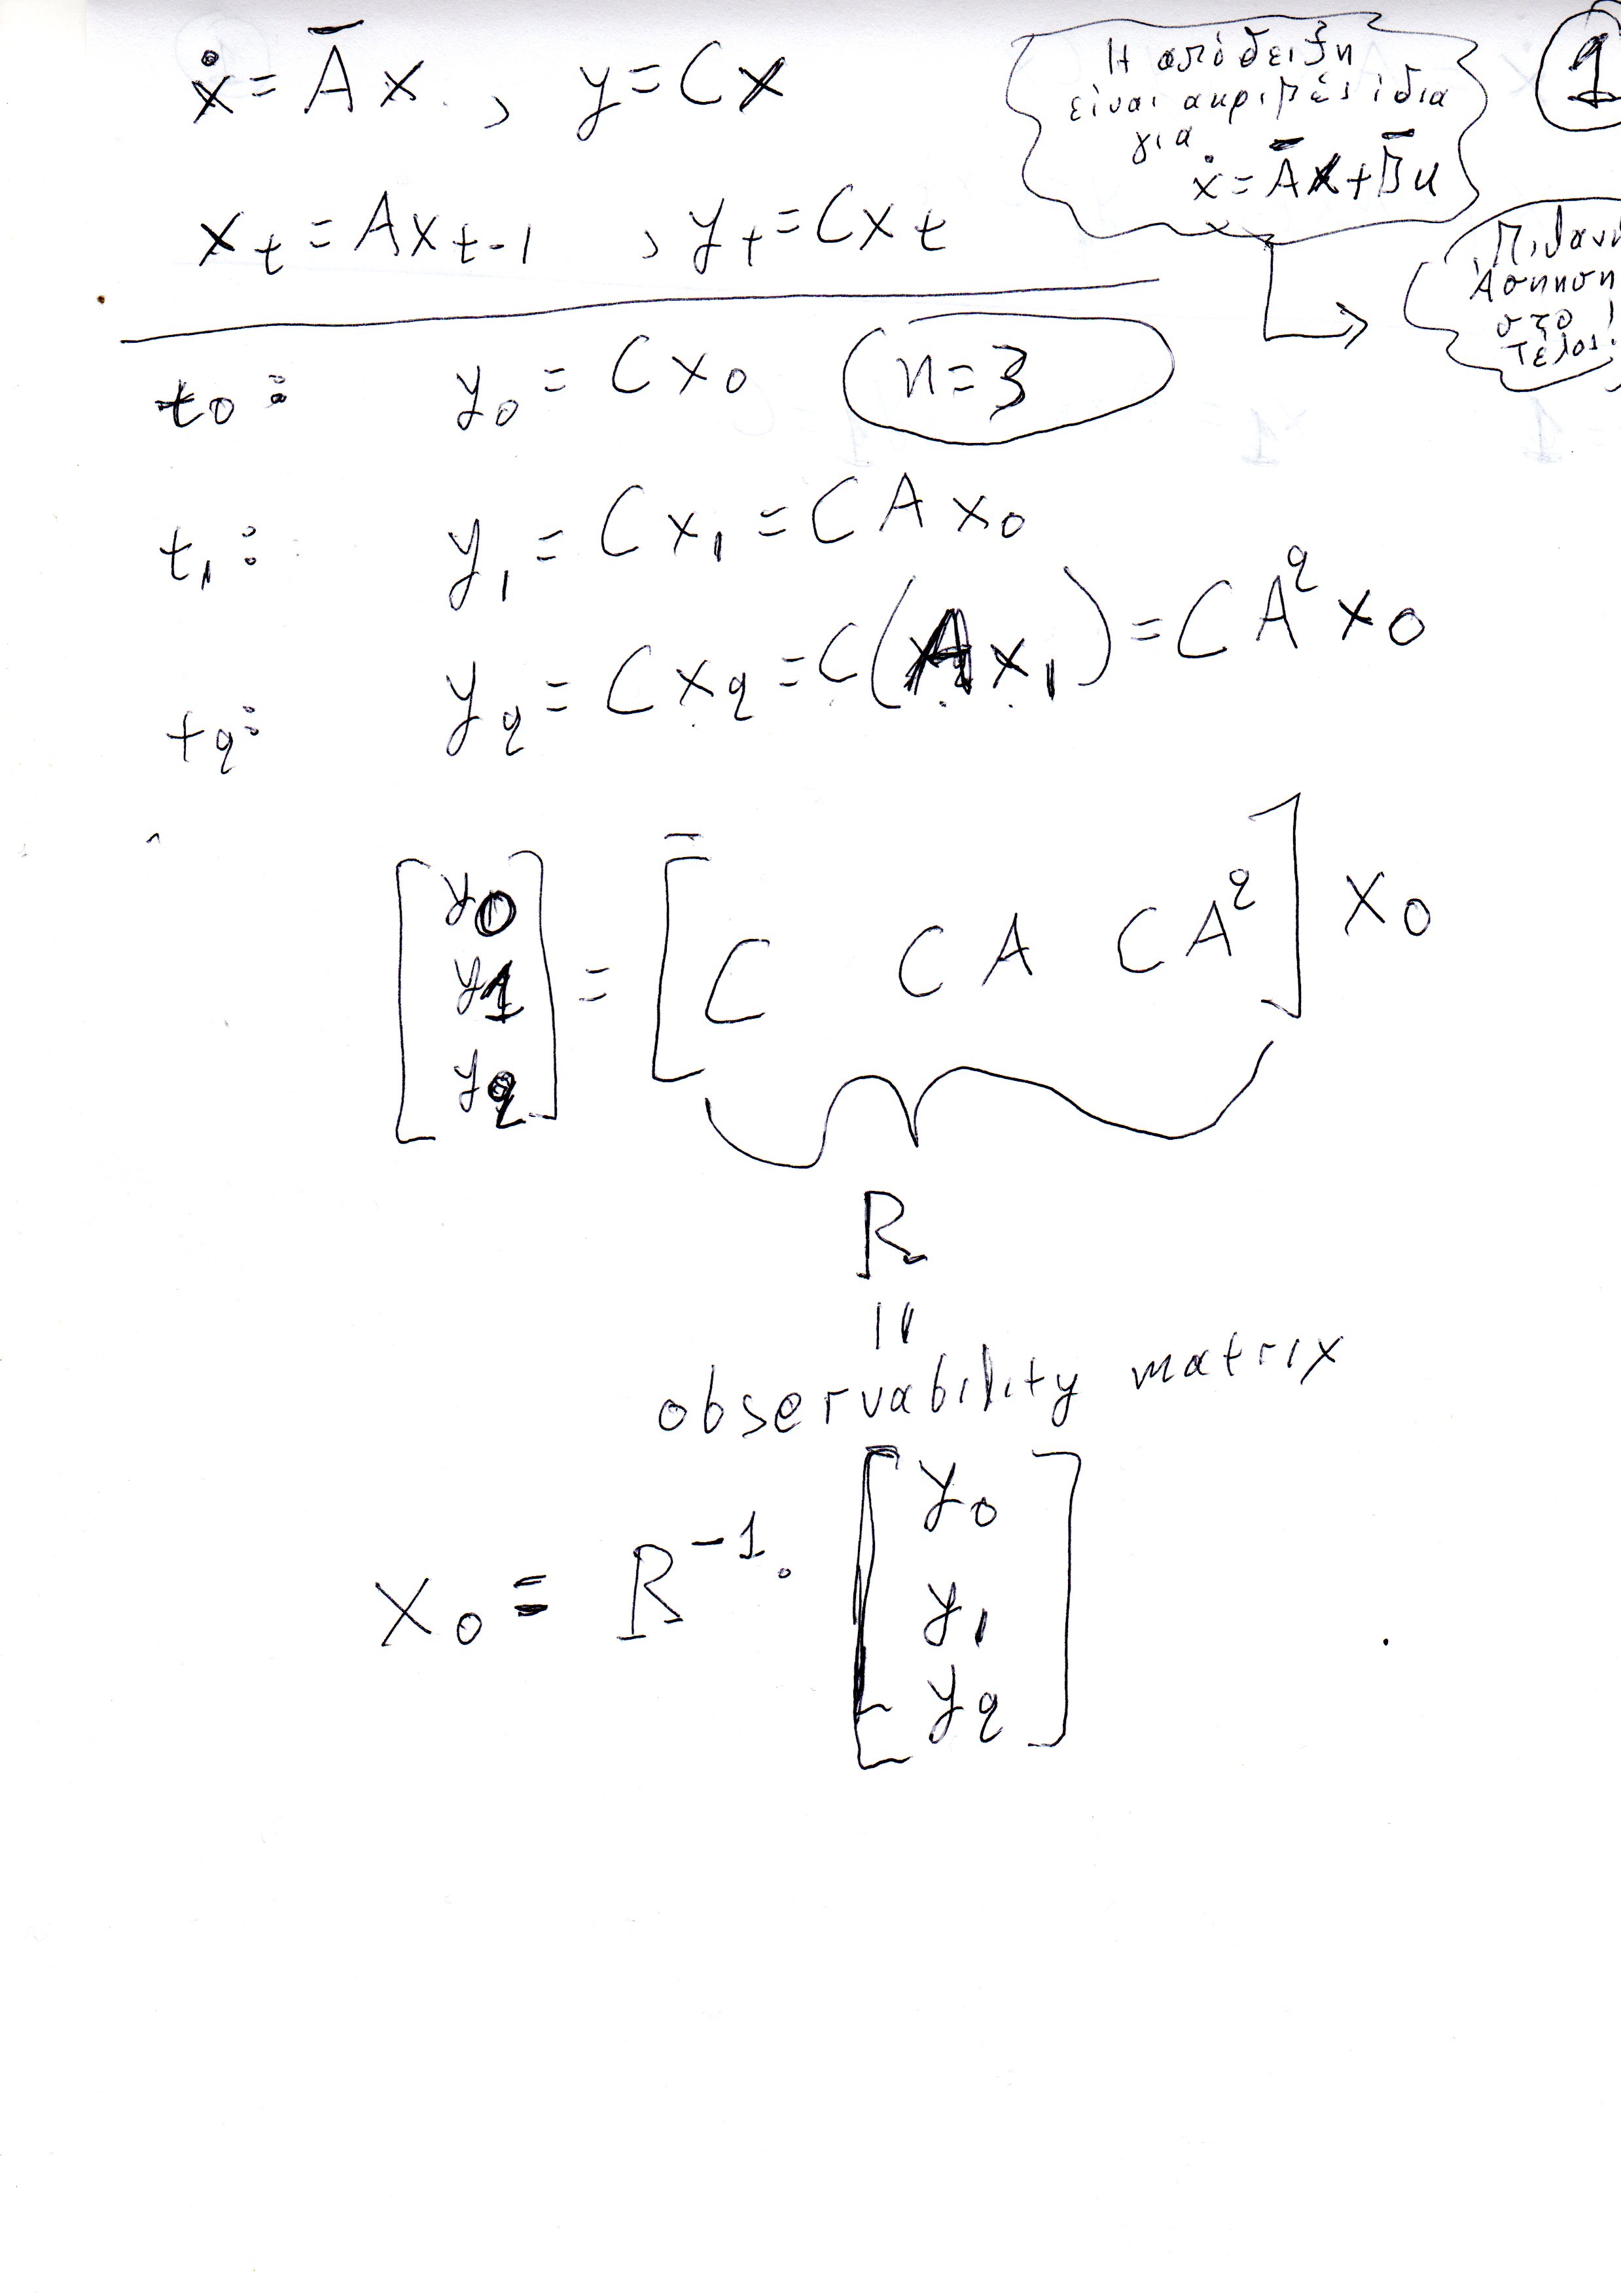 ẋ = A̅x , y = Cx
Η απόδειξη
είναι ακριβώς ίδια
για
ẋ = A̅x + B̅u
1
x_t = Ax_{t-1} , y_t = Cx_t
Άσκηση
στο
τέλος!
t_0: y_0 = Cx_0 n=3
t_1: y_1 = Cx_1 = CAx_0
t_2: y_2 = Cx_2 = C(Ax_1) = CA^2 x_0
[y_0 y_1 y_2] = [C CA CA^2] x_0
R
=
observability matrix
x_0 = R^{-1} · [y_0 y_1 y_2]